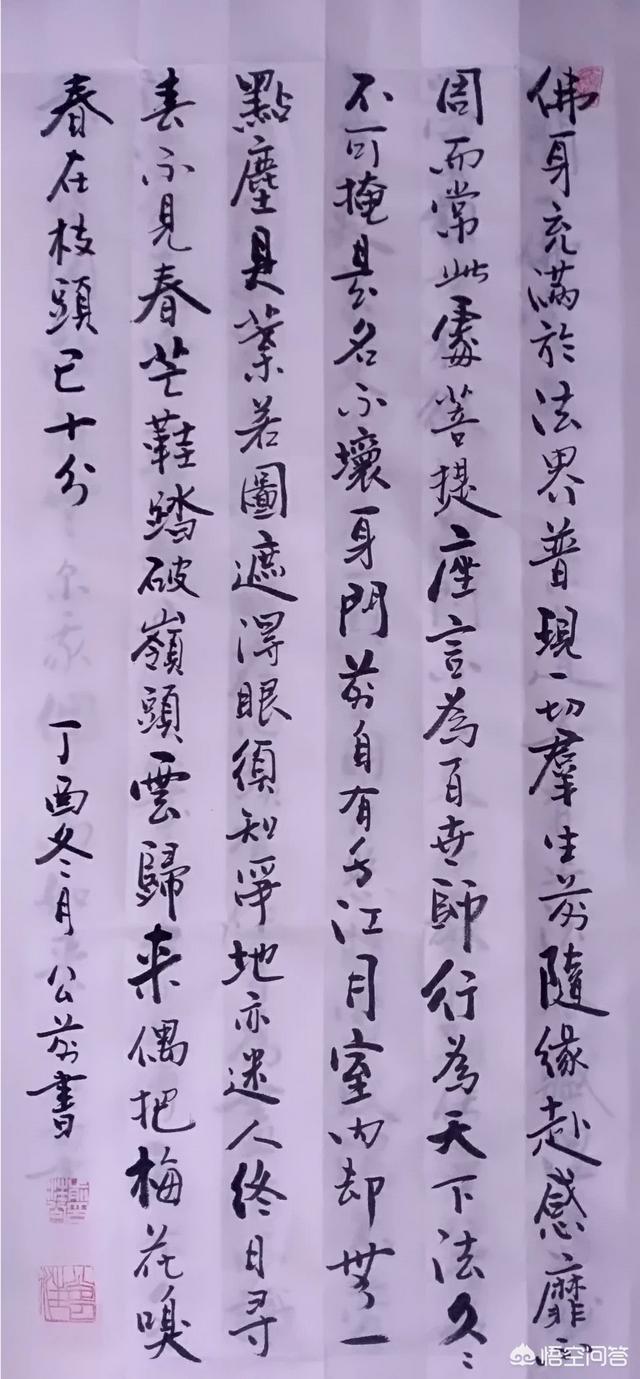 佛身充满於法界普現一切羣生前隨緣赴感靡不
周而常此處菩提座言為百世師行為天下法久〻
不可掩是名不壞身門前自有千江月室内却無一
點塵貝葉若圖遮得眼須知淨地亦迷人終日尋
春不見春芒鞋踏破嶺頭雲歸来偶把梅花嗅
春在枝頭已十分
丁酉冬月公前書
悟空问答